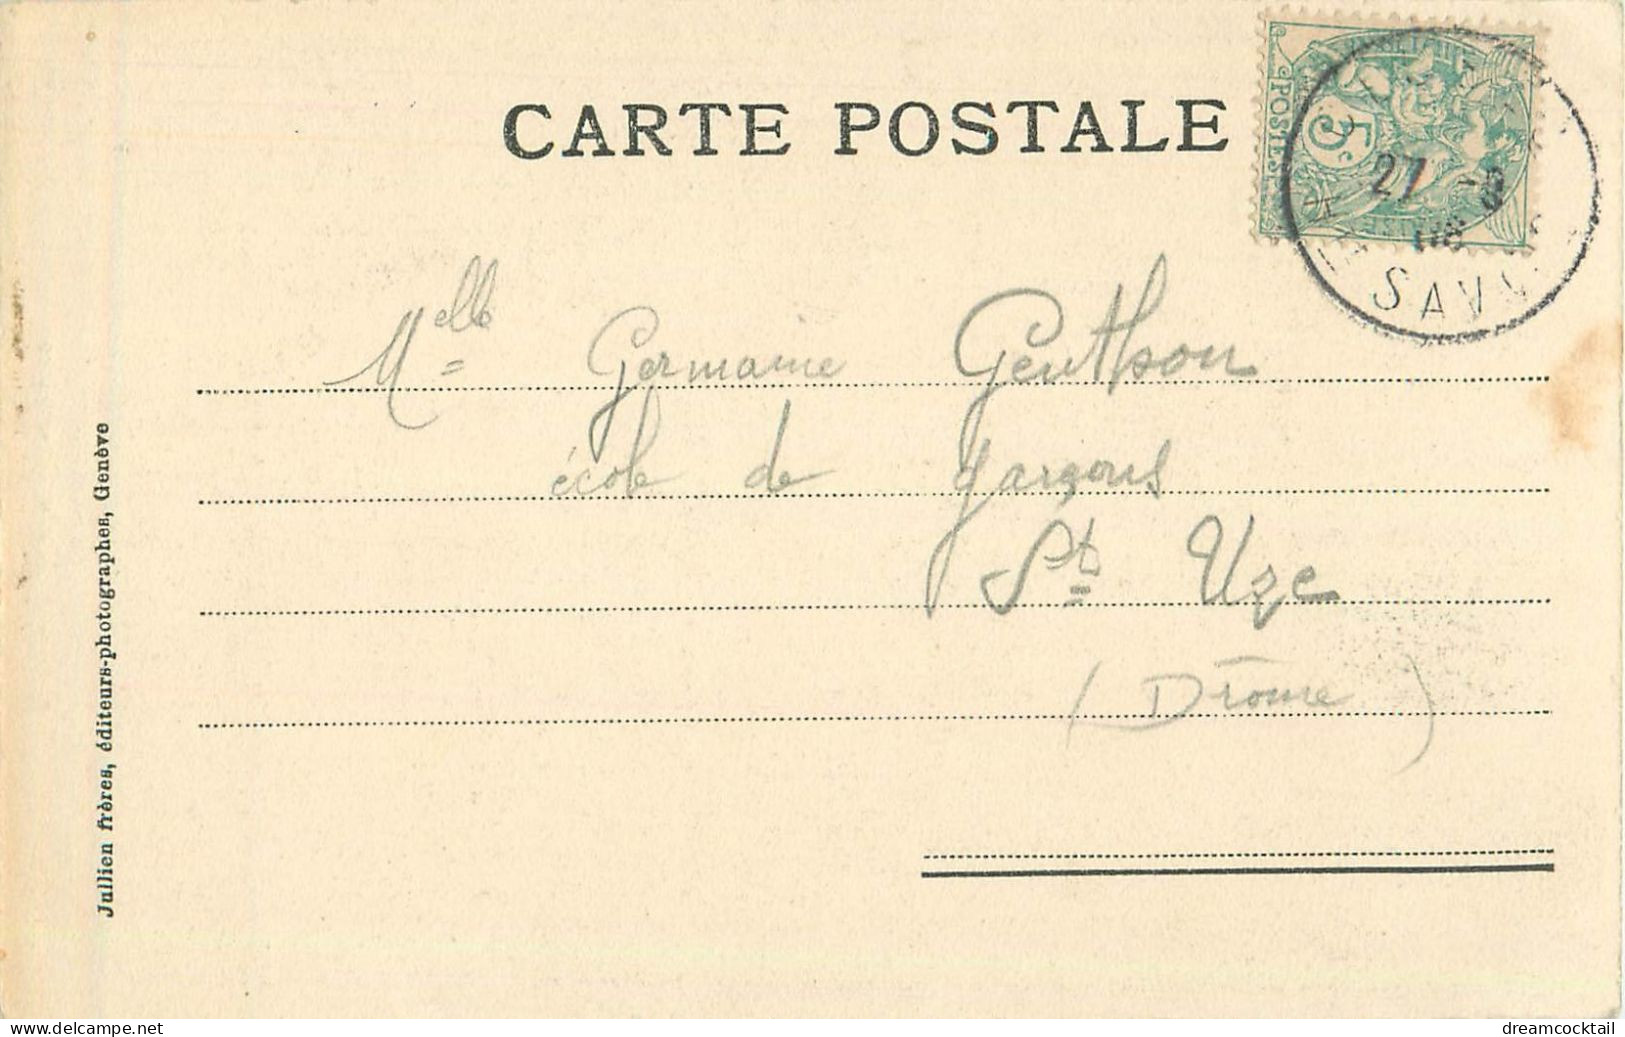 CARTE POSTALE
POSTES
5c
27 -8
06
SAVO
Melle Germaine Genthon
école de garçons
St Uze
(Drôme)
Jullien frères, éditeurs-photographes, Genève
www.delcampe.net
dreamcocktail